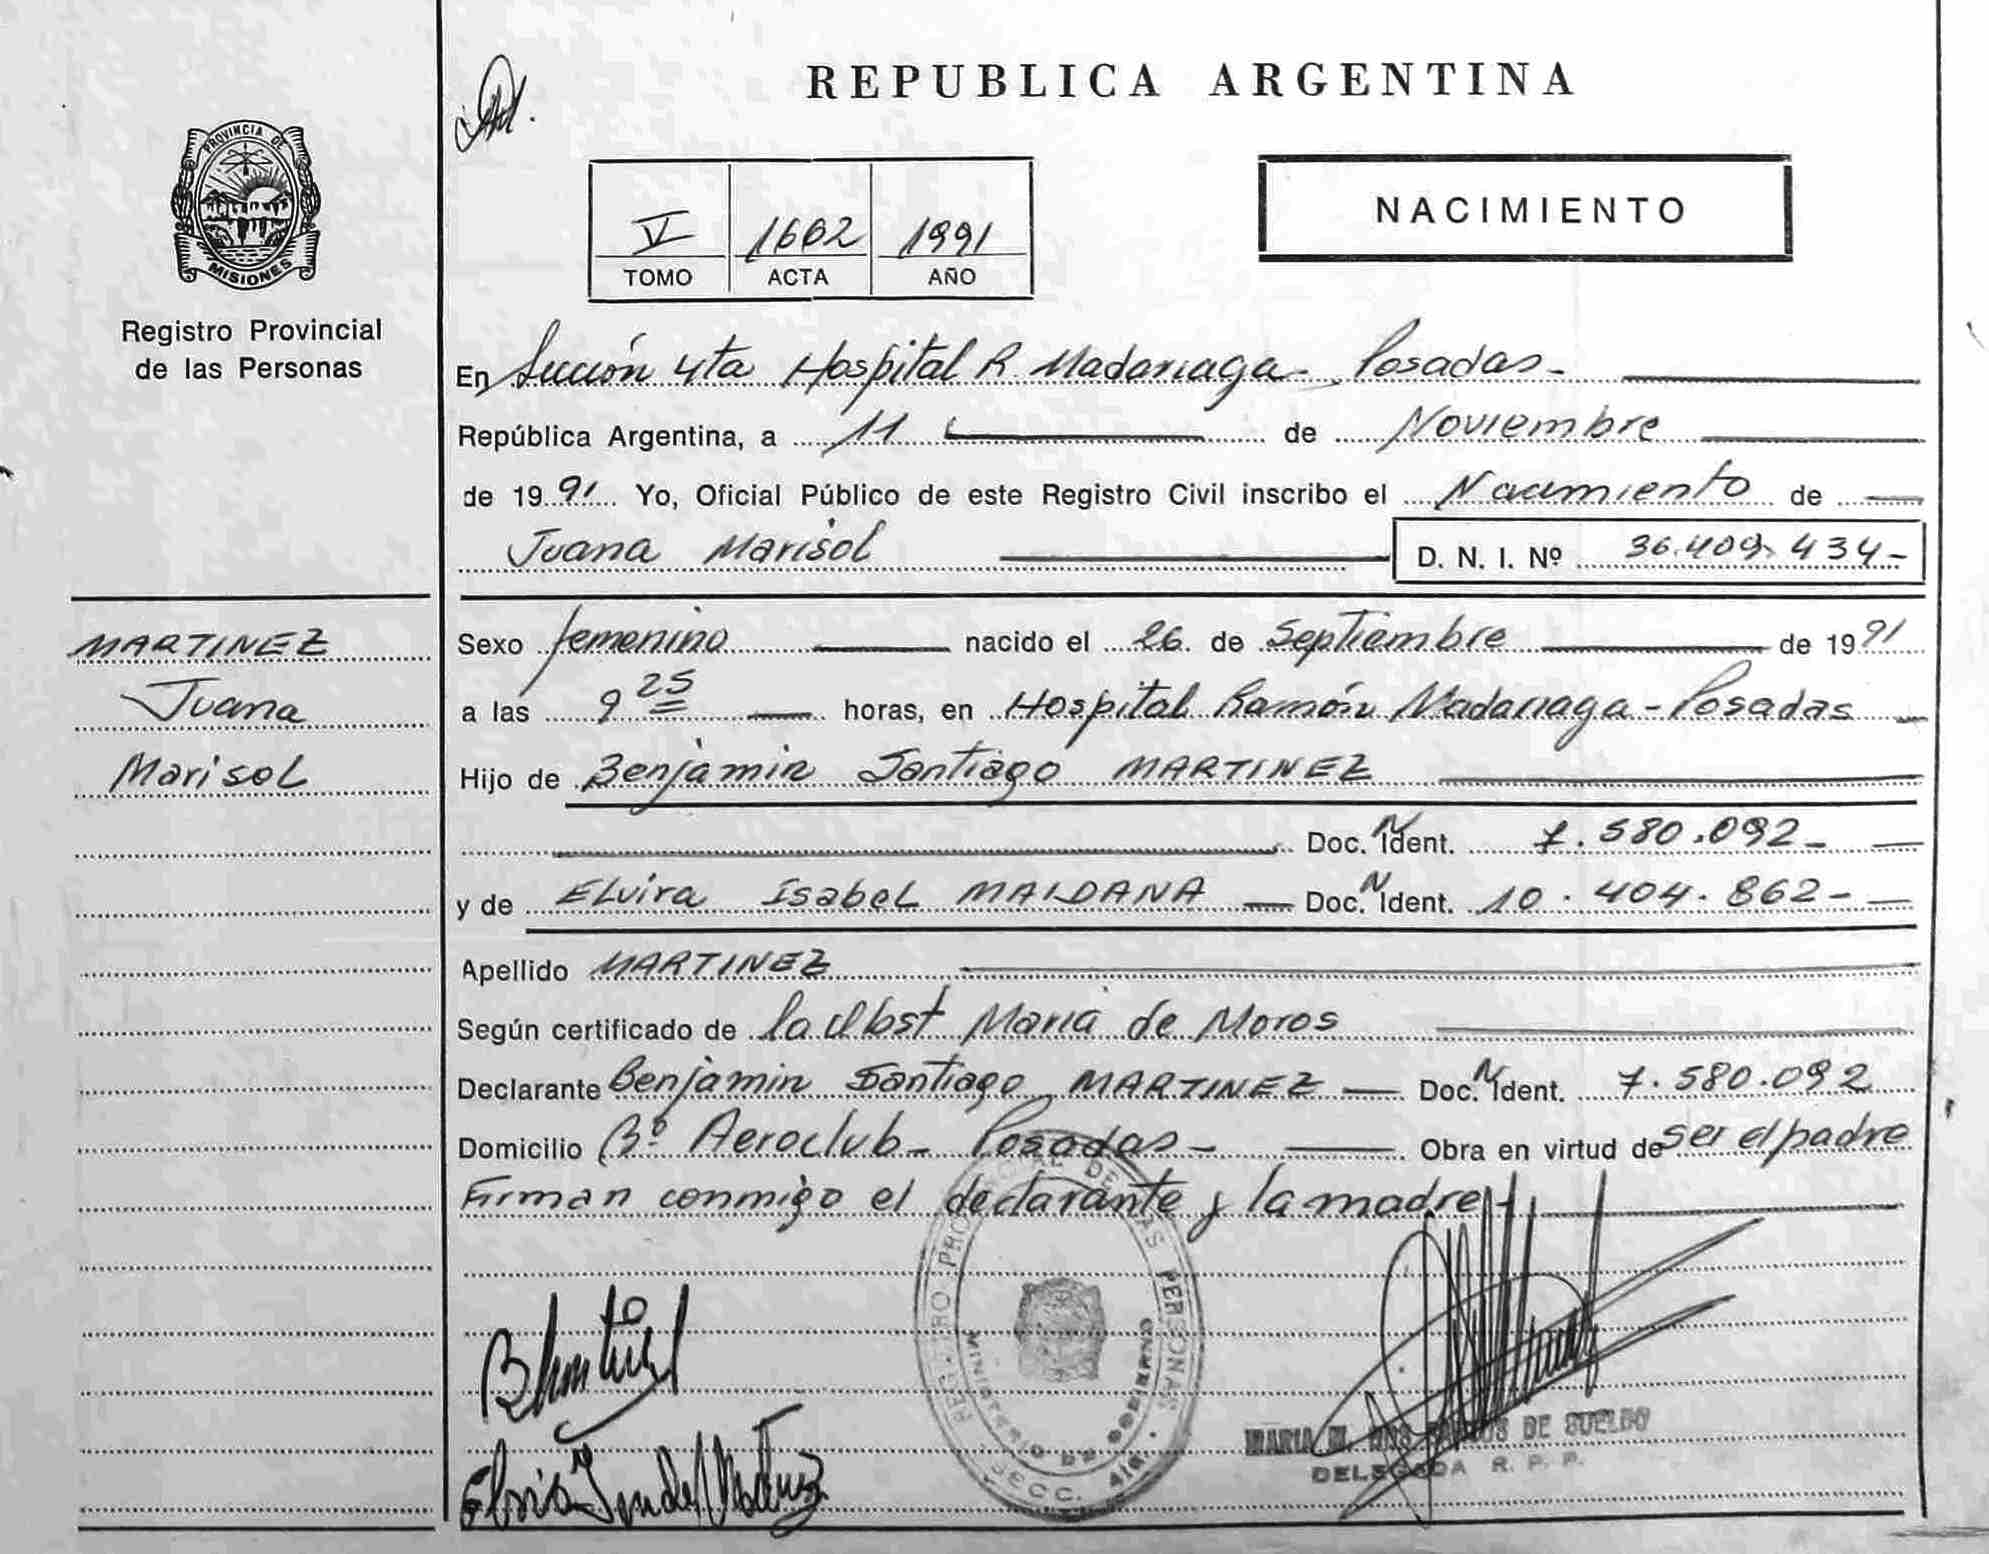 REPUBLICA ARGENTINA
PROVINCIA DE
MISIONES
Registro Provincial
de las Personas
V 1602 1991
TOMO ACTA AÑO
NACIMIENTO
En Sección 4ta Hospital R. Madariaga - Posadas -
República Argentina, a 11 de Noviembre
de 1991 Yo, Oficial Público de este Registro Civil inscribo el Nacimiento de
Juana Marisol D. N. I. Nº 36.409.434-
MARTINEZ
Juana
Marisol
Sexo femenino nacido el 26 de Septiembre de 1991
a las 9 25 horas, en Hospital Ramón Madariaga - Posadas
Hijo de Benjamin Santiago MARTINEZ
Doc. N Ident. 7.580.092-
y de Elvira Isabel MAIDANA Doc. N Ident. 10.404.862-
Apellido MARTINEZ
Según certificado de la Obst Maria de Moros
Declarante Benjamin Santiago MARTINEZ Doc. N Ident. 7.580.092
Domicilio Bº Aeroclub - Posadas - Obra en virtud de ser el padre
Firman conmigo el declarante y la madre -
REGISTRO PROVINCIAL DE LAS PERSONAS
MINISTERIO DE GOBIERNO
SECC. 4ta.
MARIA DE SUELDO
DELEGADA R. P. P.